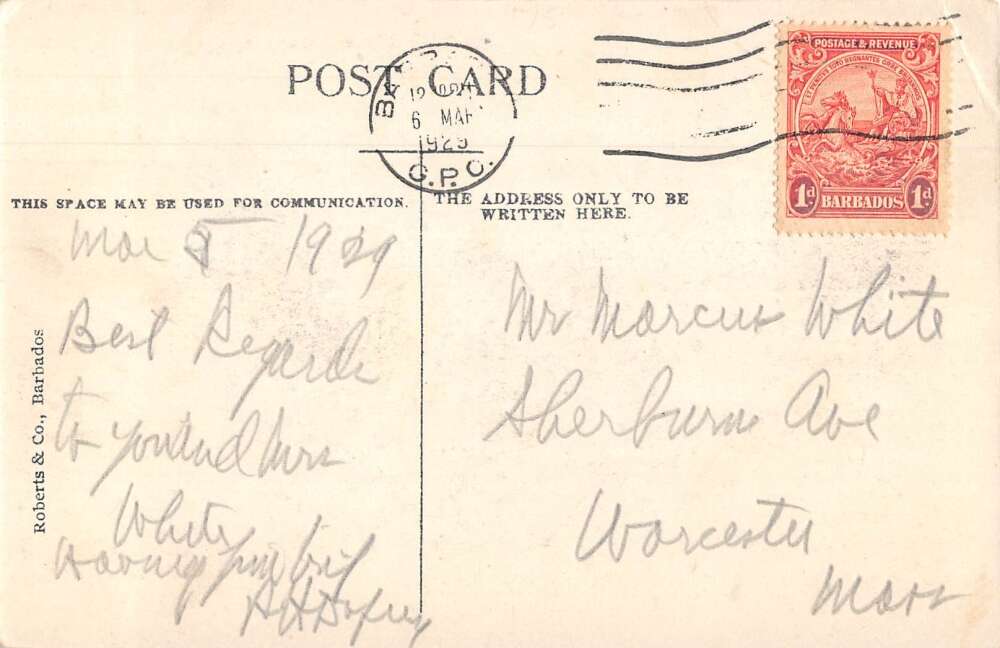 POST CARD
12
6 MAR
1929
G.P.O.
POSTAGE & REVENUE
1d BARBADOS 1d
THIS SPACE MAY BE USED FOR COMMUNICATION.
THE ADDRESS ONLY TO BE
WRITTEN HERE.
Roberts & Co., Barbados.
Mar 5 1929
Best Regards
to you and Mrs
White
Having fine
Mr Marcus White
Sherburn Ave
Worcester
Mass